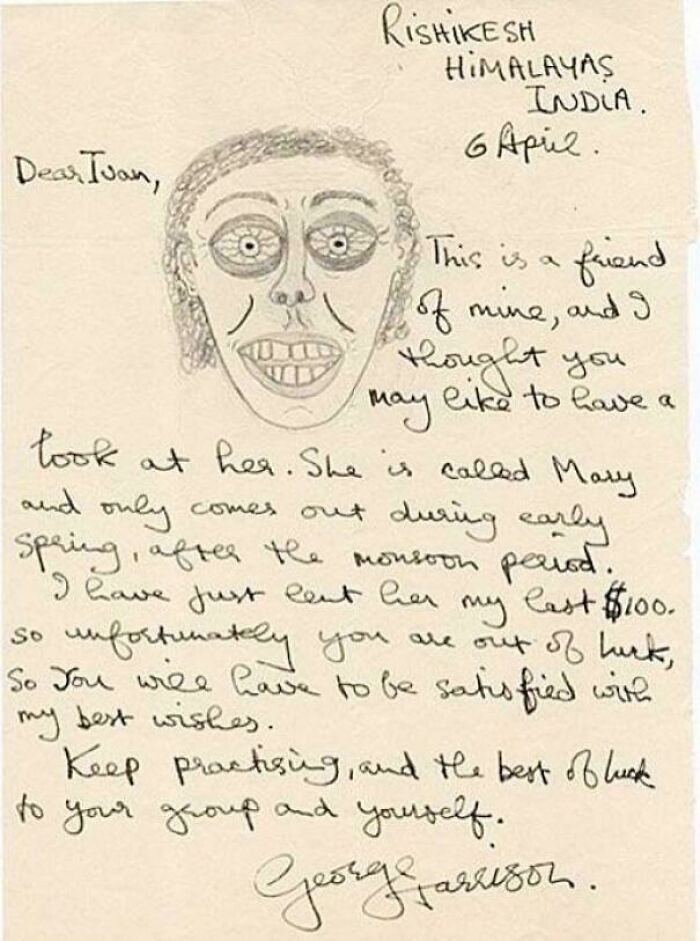 RISHIKESH
HIMALAYAS
INDIA.
6 April.
Dear Ivan,
This is a friend
of mine, and I
thought you
may like to have a
look at her. She is called Mary
and only comes out during early
spring, after the monsoon period.
I have just lent her my last $100.
so unfortunately you are out of luck,
So You will have to be satisfied with
my best wishes.
Keep practising, and the best of luck
to your group and yourself.
George Harrison.